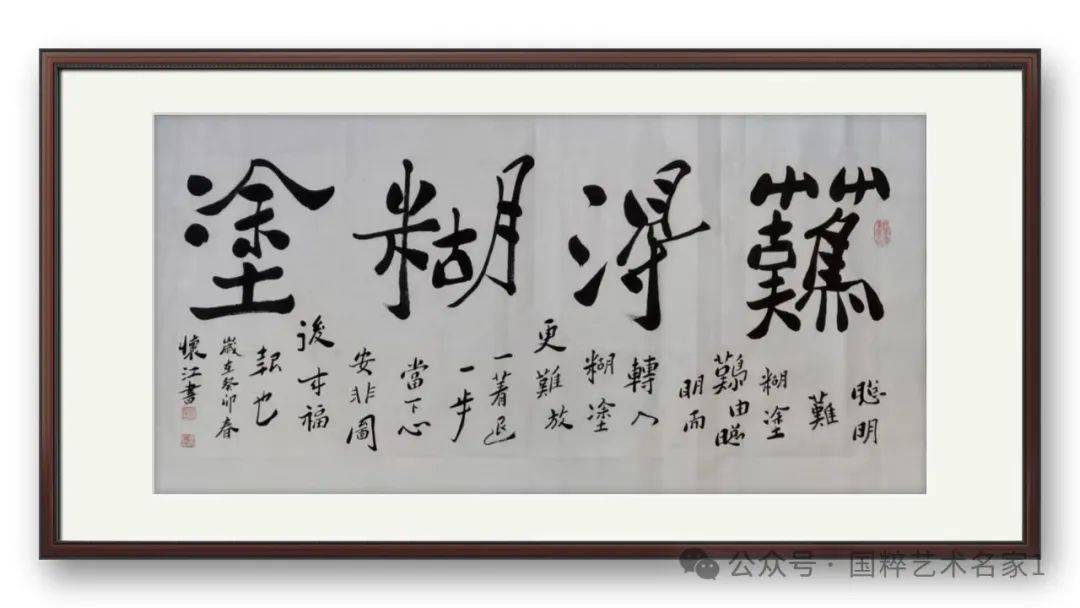 難得糊塗
聰明
難
糊塗
難由聰
明而
轉入
糊塗
更難放
一著退
一步
當下心
安非圖
後來福
報也
歲在癸卯春
懷江書
公众号·国粹艺术名家1